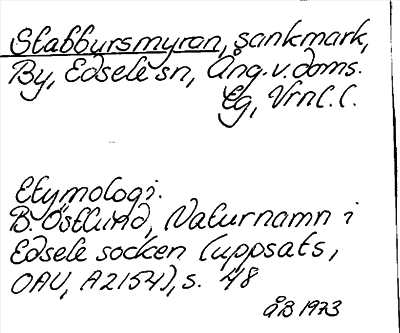 Stabbursmyran, sankmark,
By, Edsele sn, Ång. v. doms.
Eg, Vrnl. l.
Etymologi.
B. Östlund, Naturnamn i
Edsele socken (uppsats,
OAU, A2154), s. 48
ÅB 1973